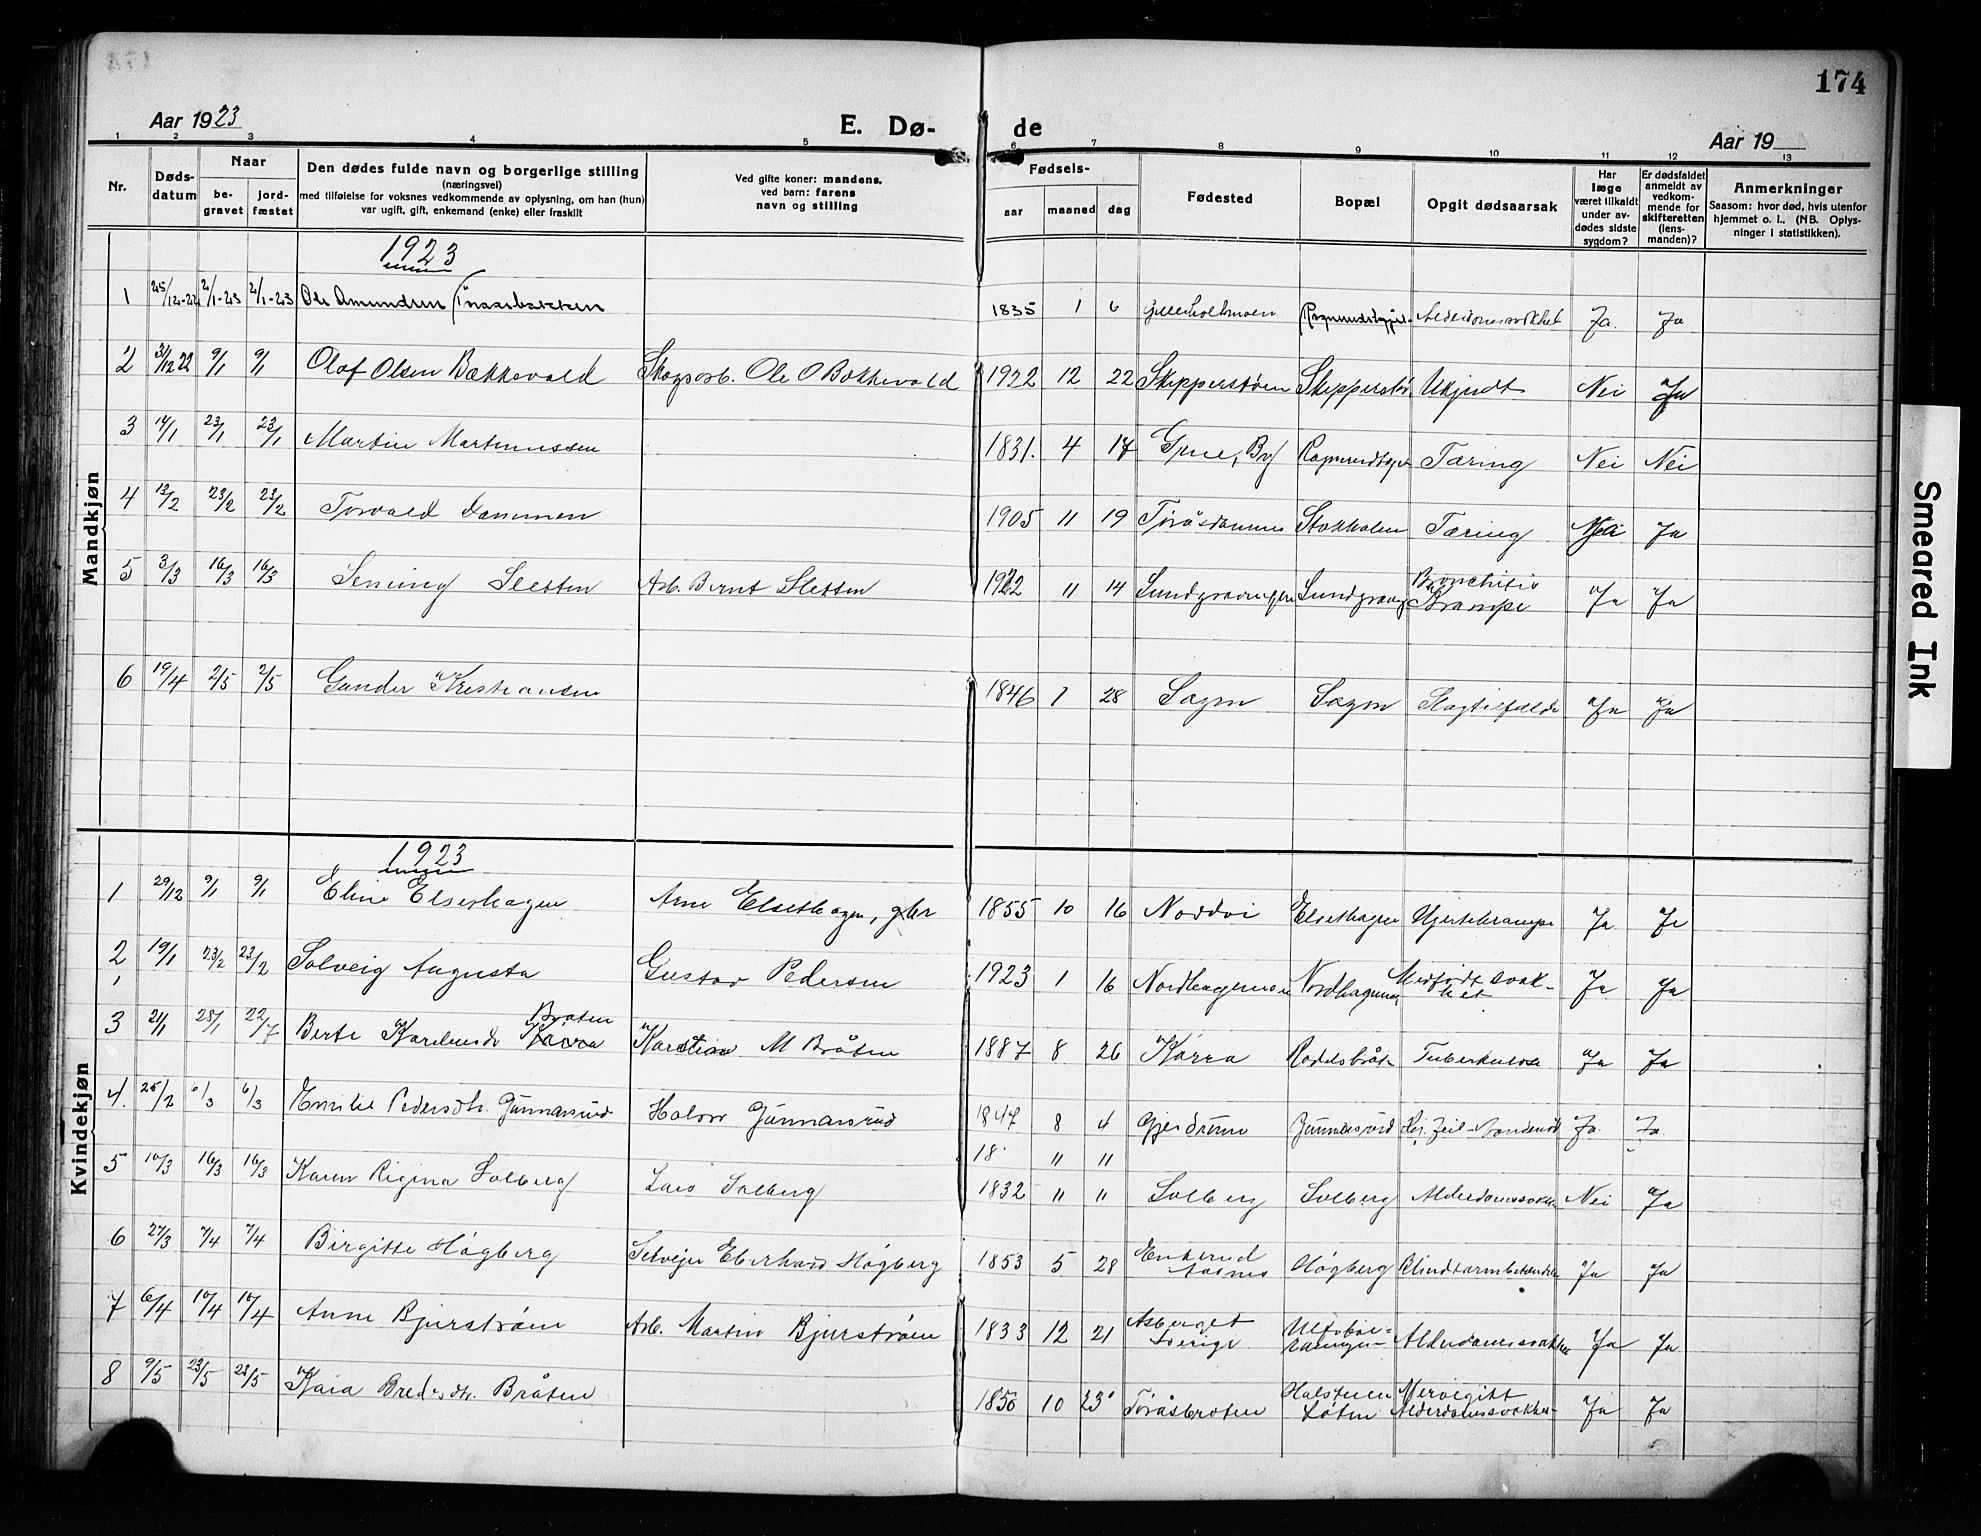 174
Aar 1923
E. Dø-
de
Aar 19
1 2 3 4 5 6 7 8 9 10 11 12 13
Nr.
Døds-
datum
Naar
be-
gravet
jord-
fæstet
Den dødes fulde navn og borgerlige stilling
(næringsvei)
med tilføielse for voksnes vedkommende av oplysning, om han (hun)
var ugift, gift, enkemand (enke) eller fraskilt
Ved gifte koner: mandens,
ved barn: farens
navn og stilling
Fødsels-
aar maaned dag
Fødested
Bopæl
Opgit dødsaarsak
Har
læge
været tilkaldt
under av-
dødes sidste
sygdom?
Er dødsfaldet
anmeldt av
vedkom-
mende for
skifteretten
(lens-
manden)?
Anmerkninger
Saasom: hvor død, hvis utenfor
hjemmet o. l., (NB. Oplys-
ninger i statistikken).
Mandkjøn
1923
1 25/12-22 2/1-23 2/1-23 Ole Amundsen 1835 1 6 Alderdomssvakhet Ja. Ja
2 31/12 22 9/1 9/1 Olaf Olsen Bækkevold Skogsarb. Ole O Bækkevold 1922 12 22 Skipperstøen Skipperstø. Ukjendt Nei Ja
3 14/1 23/1 23/1 Martin Martinussen 1831. 4 17 Grue, By Tæring Nei Nei
4 13/2 23/2 23/2 Torvald Dammen 1905 11 19 Stokholm Tæring Nei Ja
5 3/3 16/3 16/3 Sletten Arb. Bernt Sletten 1922 11 14 Bronchitis
Krampe Ja Ja
6 19/4 2/5 2/5 Gunder Kristiansen 1846 1 28 Sagen Sagen Slagtilfælde Ja Ja
Kvindekjøn
1923
1 29/12 9/1 9/1 Eline Elsethagen Arne Elsethagen, gbr 1855 10 16 Elsethagen Hjertekrampe Ja Ja
2 19/1 23/2 23/2 Solveig Augusta Gustav Pedersen 1923 1 16 Nordhagemoen Medfødt svak-
het Ja Ja
3 21/1 28/1 22/7 Berte Karlsensdr Braten Karstian M Bråten 1887 8 26 Kårra Tuberkulose Ja Ja
4. 25/2 6/3 6/3 Emilie Pedersdtr. Gunnarsrud Halvor Gunnarsrud 1847 8 4 Gjerdrum Gunnarsrud Ja. Ja.
18 " "
5 10/3 16/3 16/3 Karen Regina Solberg Lars Solberg 1832 " " Solberg Solberg Alderdomssvakhe Nei Ja
6 27/3 7/4 7/4 Birgitte Høgberg Selveier Eberhard Høgberg 1853 5 28 Aasnes Høgberg Blindtarmbetændelse Ja Ja
7 6/4 10/4 10/4 Anne Bjurstrøm Arb. Martin Bjurstrøm 1833 12 21 Sverige Alderdomssvakhe Ja Ja
8 9/5 23/5 23/5 Kaia Bredesdtr. Bråten 1850 10 23 Toråsbråten Løten Alderdomssvakhe- Ja Ja
Smeared Ink